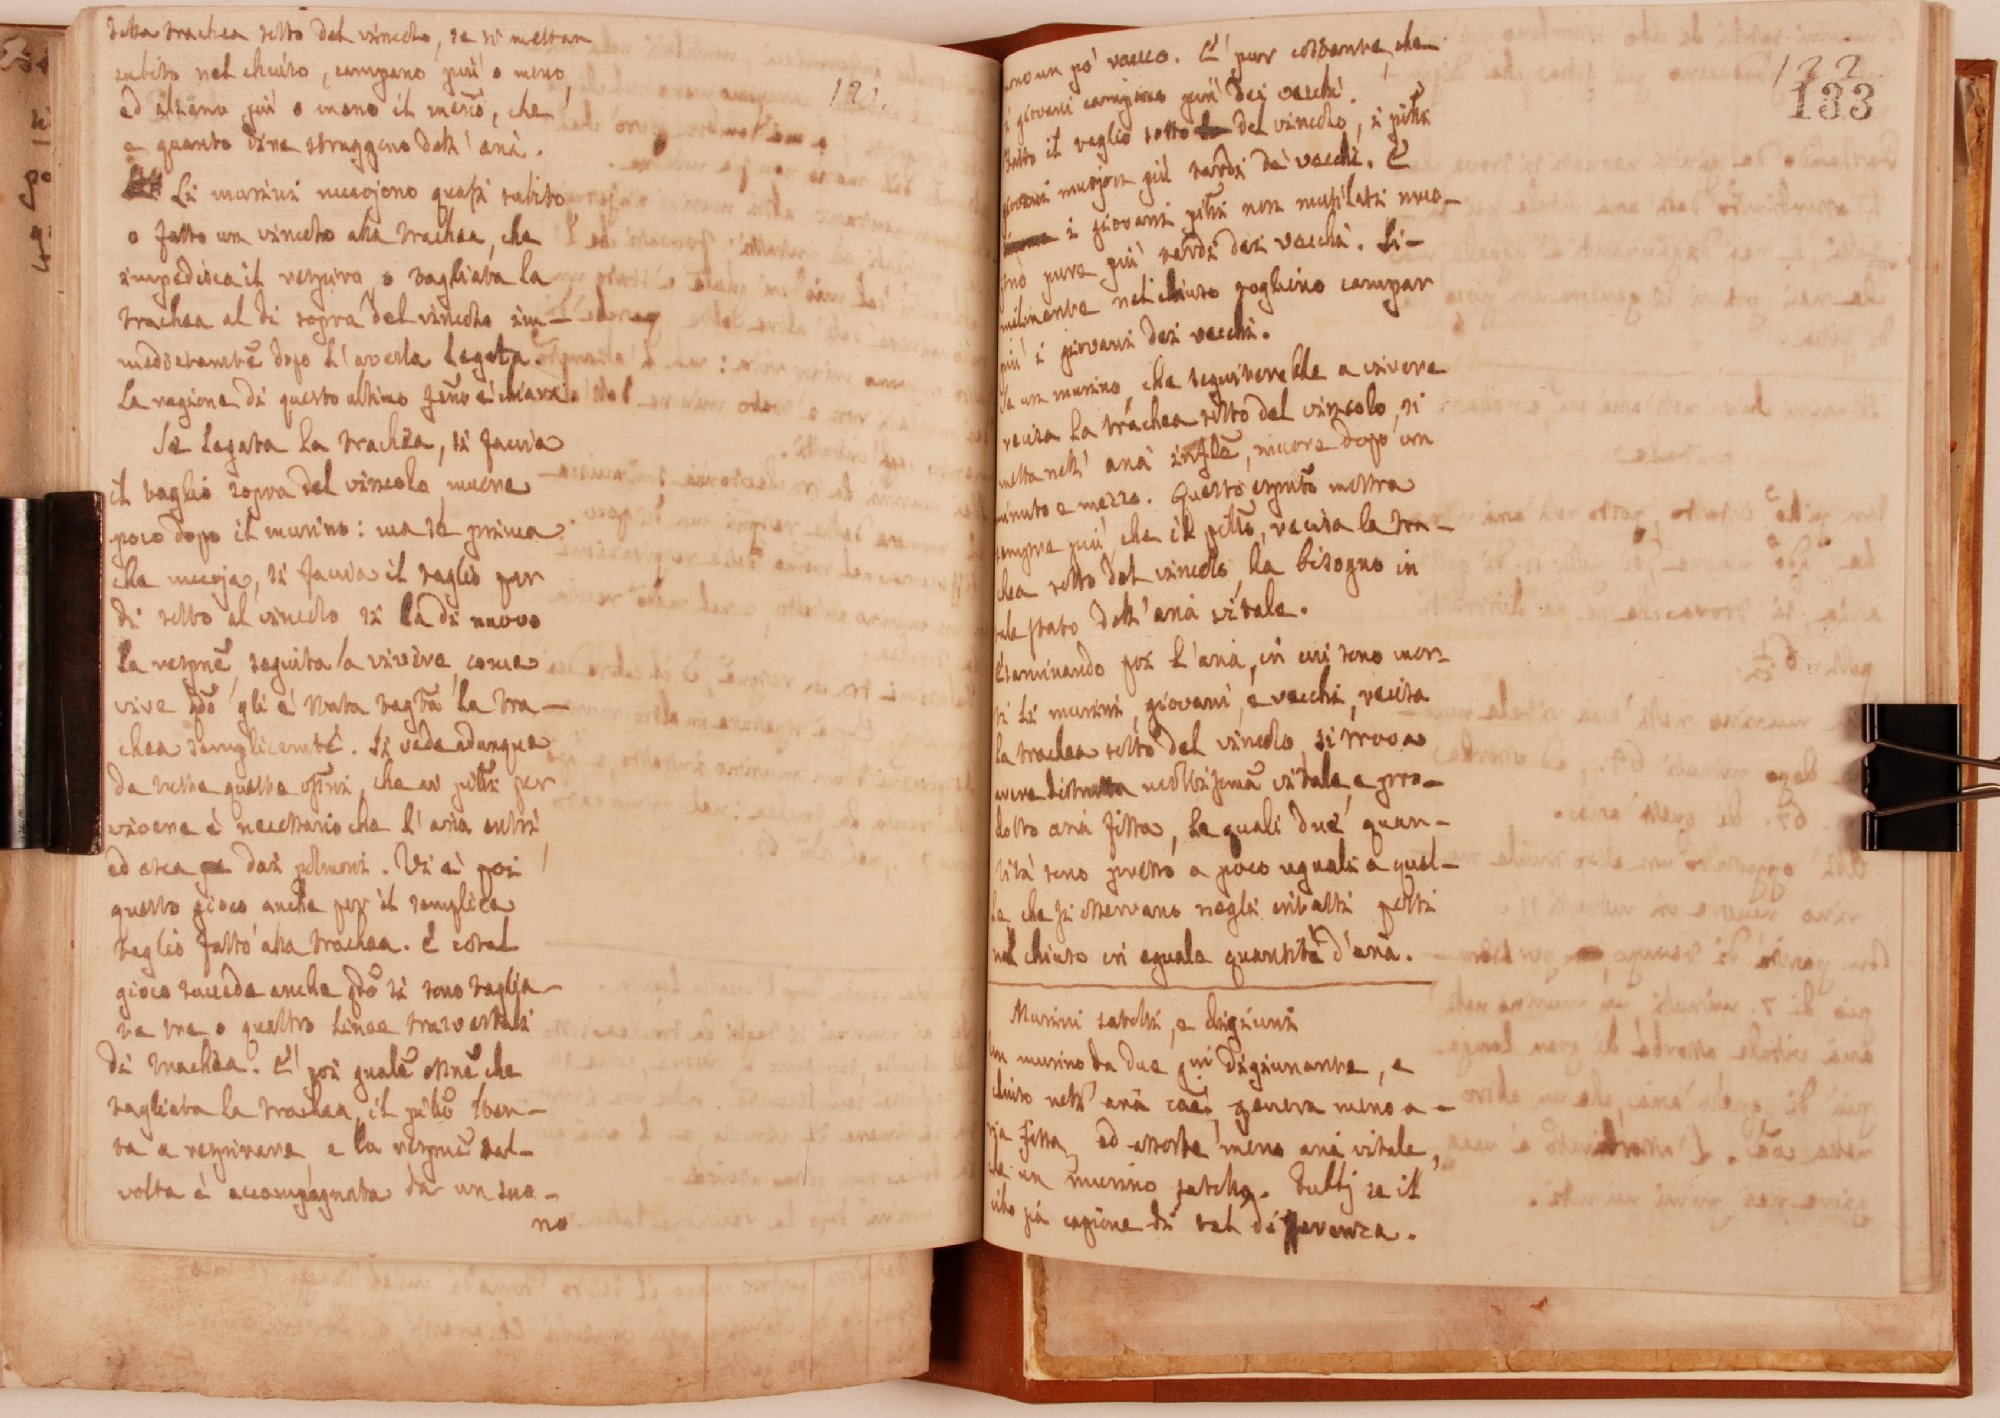 della trachea sotto del vincolo, se si mettan
subito nel chiuso, campano più o meno,
ed alzano più o meno il merc.o, che
a quanto dire struggono dell' aria.
Li murini muojono quasi subito
o fatto un vincolo alla trachea, che
impedisca il respiro, o tagliata la
trachea al di sopra del vincolo im-
mediatamte dopo l'averla legata.
La ragione di questo ultimo feño è chiara.
Se legata la trachea, si faccia
il taglio sopra del vincolo, muore
poco dopo il murino: ma se prima
che muoja, si faccia il taglio per
di sotto al vincolo si ha di nuovo
la respne, seguita a vivere, come
vive qdo gli è stata tagta la tra-
chea semplicemte. Si vede adunque
da tutte queste ossni, che ai pitti per
vivere è necessario che l'aria entri,
ed esca dai polmoni. Vi è poi
questo gioco anche per il semplice
taglio fatto alla trachea. E cotal
gioco succede anche qdo si sono taglia-
te tre o quattro linee trasversali
di trachea. E' poi gnale ossne che
tagliata la trachea, il pitto sten-
ta a respirare, e la respne tal-
volta è accompagnata da un suo-
no
121.
no un po' rauco. E' pur costante, che
i giovani campino più dei vecchi.
Fatto il taglio sotto del vincolo, i pitti
giovani muojon più tardi de' vecchi. E
i giovani pitti non mutilati muo-
jono pure più tardi dei vecchi. Si-
milmente nel chiuso sogliono campar
più i giovani dei vecchi.
Se un murino, che seguiterebbe a vivere
recisa la trachea sotto del vincolo, si
metta nell' aria infta, muore dopo un
minuto e mezzo. Questo espmto mostra
sempre più che il pitto, recisa la tra-
chea sotto del vincolo, ha bisogno in
tale stato dell' aria vitale.
Esaminando poi l'aria, in cui sono mor-
ti li murini, giovani, e vecchi, recisa
la trachea sotto del vincolo, si trova
avere distrutta moltissima vitale, e pro-
dotto aria fissa, le quali due quan-
tità sono presso a poco uguali a quel-
le che si osservano negli intatti posti
nel chiuso in eguale quantità d'aria.
Murini satolli, e digiuni
Un murino da due gni digiunante, e
chiuso nell' aria coe, genera meno a-
ria fissa, ed assorbe meno aria vitale,
che un murino satollo. Tutti se il
cibo sia cagione di tal differenza.
122.
133